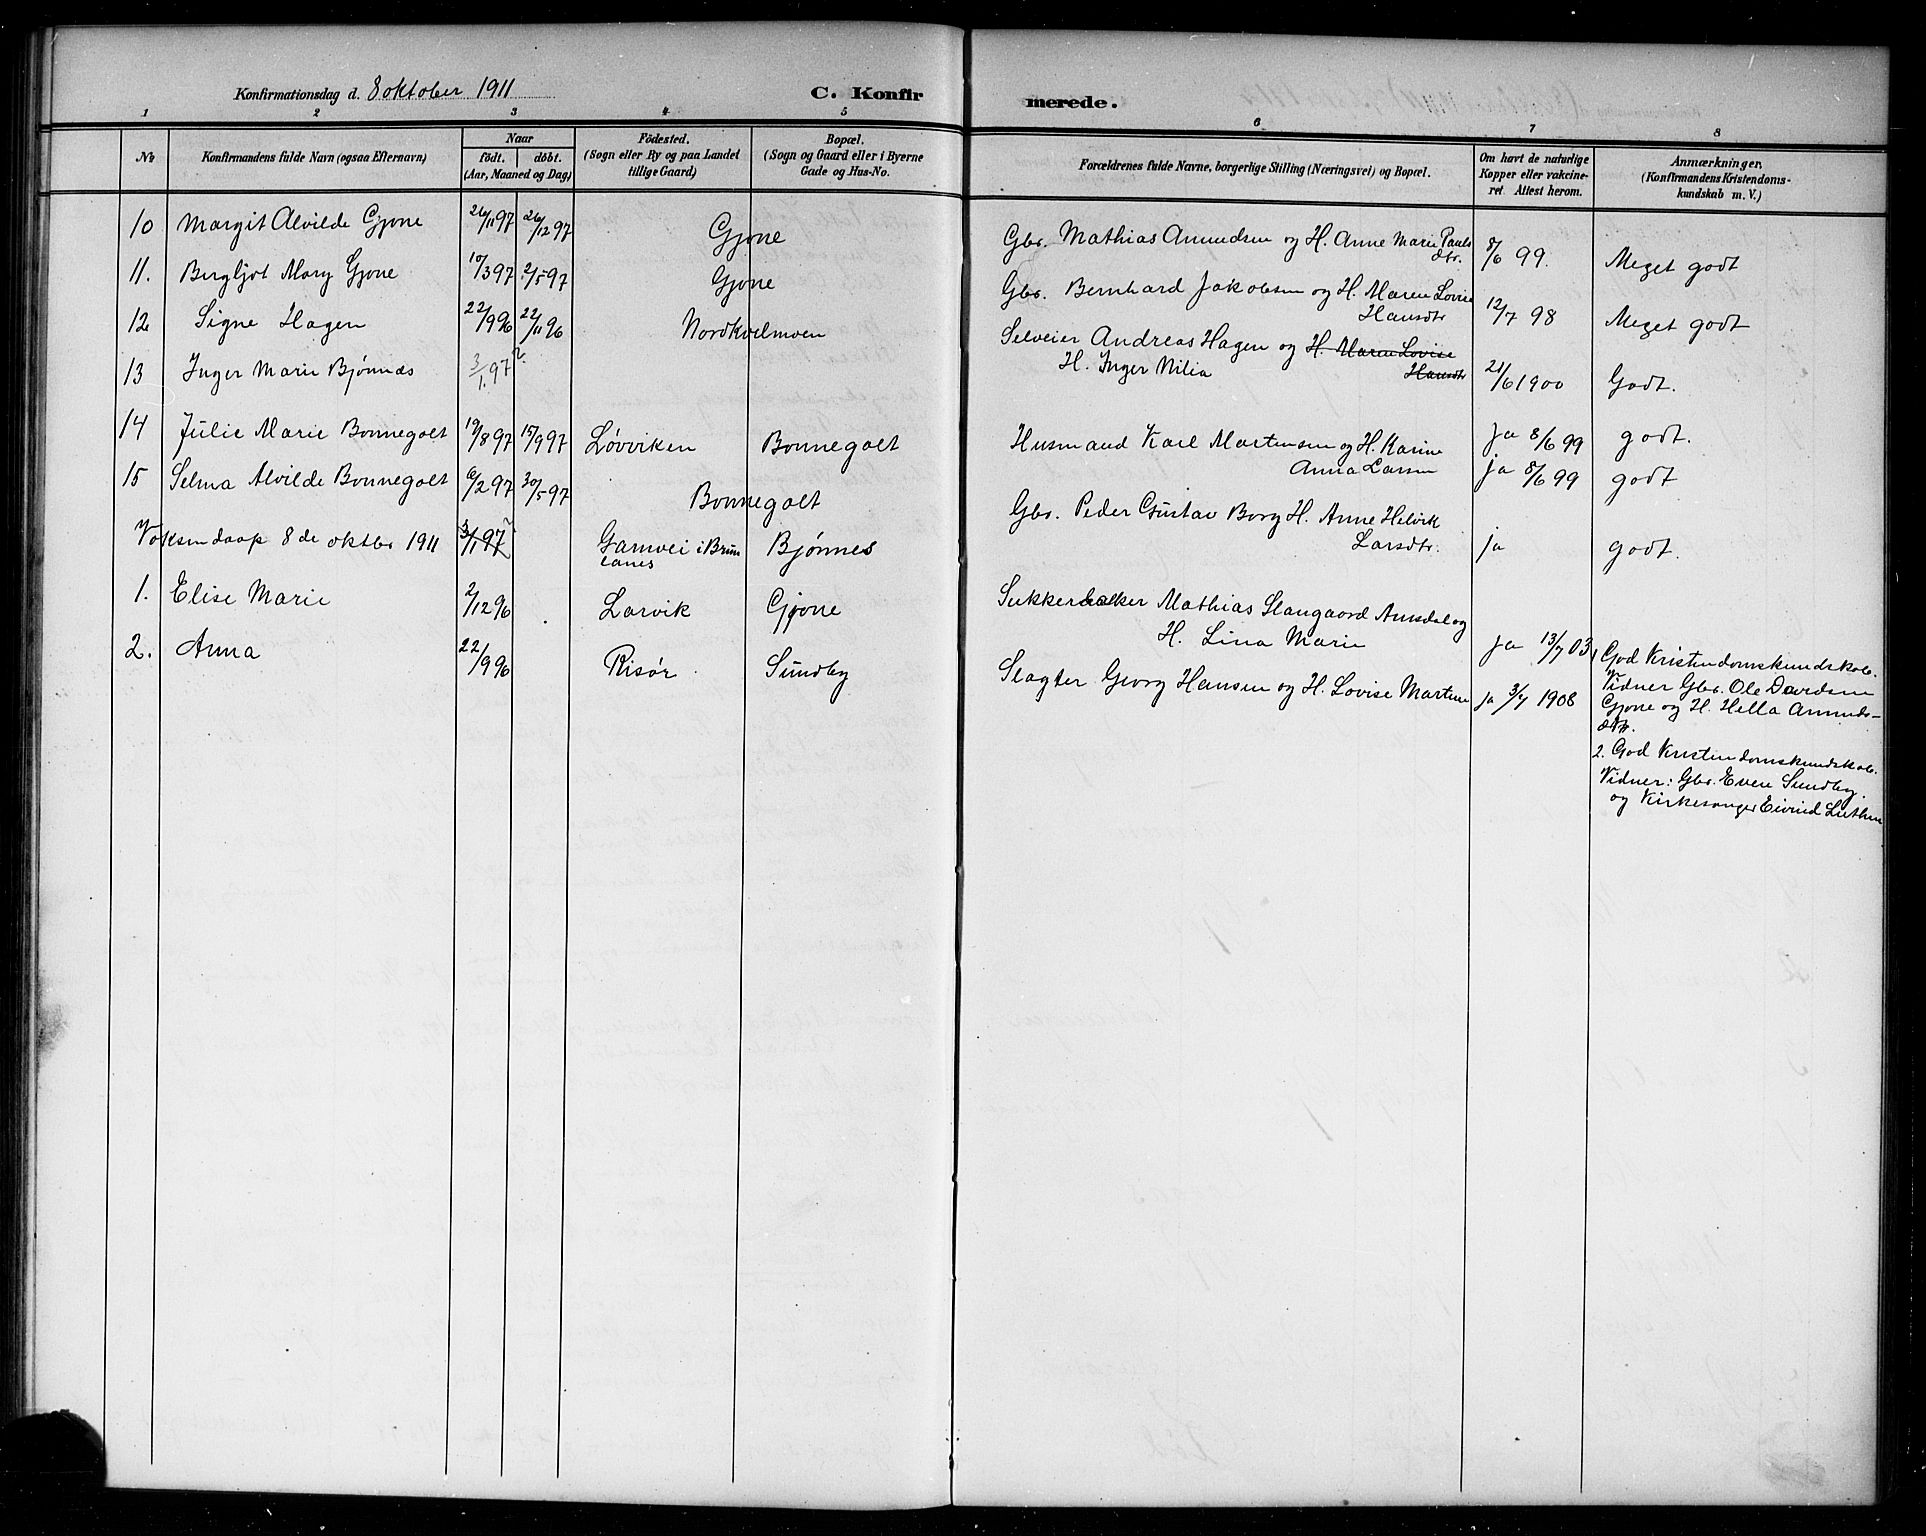 Konfirmationsdag d. 8 oktober 1911 C. Konfir merede.
1 2 3 4 5 6 7 8
No Konfirmandens fulde Navn (ogsaa Efternavn) Naar födt. döbt. (Aar, Maaned og Dag) Födested. (Sogn eller By og paa Landet tillige Gaard) Bopæl. (Sogn og Gaard eller i Byerne Gade og Hus-No. Forældrenes fulde Navne, borgerlige Stilling (Næringsvei) og Bopæl. Om havt de naturlige Kopper eller vakcineret. Attest herom. Anmærkninger. (Konfirmandens Kristendomskundskab m. V.)
10 Margit Alvilde Gjone 26/11 97 26/12 97 Gjone Gbr. Mathias Amundsen og H. Anne Marie Pauls
dtr. 8/6 99. Meget godt
11. Bergljot Mary Gjone 10/3 97 2/5 97 Gjone Gbr. Bernhard Jakobsen og H. Maren Lovise
Hansdtr 12/7 98 Meget godt
12 Signe Hagen 22/9 96 22/11 96 Nordkvelmoen Selveier Andreas Hagen og H. Maren Lovise
H. Inger Nilia Hansdtr 21/6 1900 Godt.
13 Inger Marie Bjønnes 3/1. 97 ?
14 Julie Marie Bonnegolt 19/8 97 15/9 97 Løvviken Bonnegolt Husmand Karl Martinsen og H. Karine
Anna Larsen ja 8/6 99 godt.
15 Selma Alvilde Bonnegolt 6/2 97 30/5 97 Bonnegolt ja 8/6 99 godt
Gbr. Peder Gustav Borg H. Anne Helvik
Larsdtr. ja godt.
Voksendaap 8 de oktbr 1911 3/1 97 ? Gamvei i Brun
lanes Bjønnes
1. Elise Marie 2/12 96 Larvik Gjone Sukkerbakker Mathias Slangaard Amsdal og
H. Lina Marie ja 13/7 03
2. Anna 22/9 96 Risør Sundby Slagter Georg Hansen og H. Lovise Martine ja 3/7 1908
1 God Kristendomskundskab.
Vidner Gbr. Ole Davidsen
Gjone og H. Hella Amunds-
dtr.
2. God Kristendomskundskab.
Vidner: Gbr. Even Sundby.
og Kirkesanger Eivind Liethen